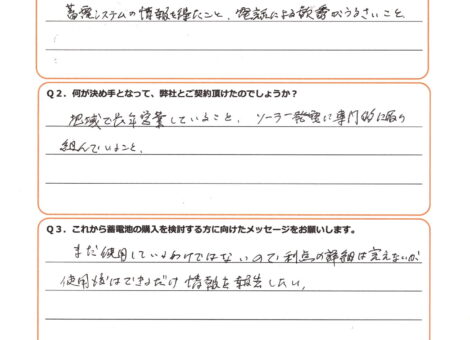 蓄電システムの情報を得たこと、電話による勧誘がうるさいこと。
Q2．何が決め手となって、弊社とご契約頂けたのでしょうか？
地域で長年営業していること、ソーラー発電に専門的に取り
組んでいること、
Q3．これから蓄電池の購入を検討する方に向けたメッセージをお願いします。
まだ使用しているわけではないので利点の詳細は言えないが、
使用後はできるだけ情報を報告したい。